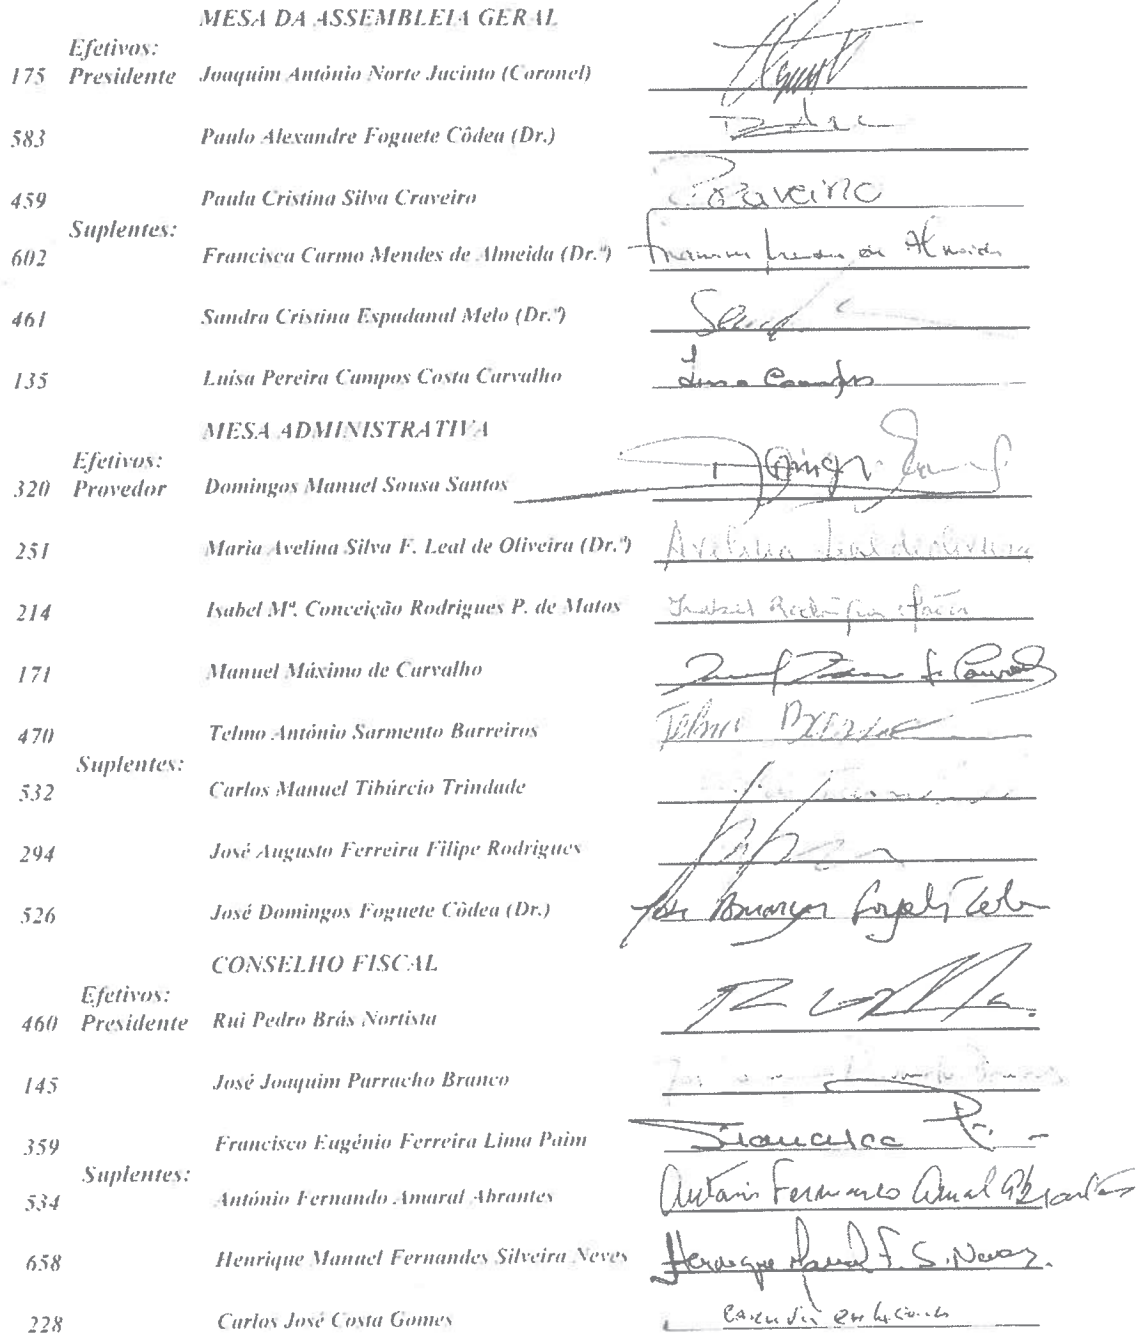 MESA DA ASSEMBLEIA GERAL
Efetivos:
175 Presidente Joaquim António Norte Jacinto (Coronel)
583 Paulo Alexandre Foguete Côdea (Dr.)
459 Paula Cristina Silva Craveiro PCraveiro
Suplentes:
602 Francisca Carmo Mendes de Almeida (Dr.ª) de Almeida
461 Sandra Cristina Espadanal Melo (Dr.ª)
135 Luísa Pereira Campos Costa Carvalho Luisa Campos
MESA ADMINISTRATIVA
Efetivos:
320 Provedor Domingos Manuel Sousa Santos
251 Maria Avelina Silva F. Leal de Oliveira (Dr.ª) Avelina Leal de Oliveira
214 Isabel Mª. Conceição Rodrigues P. de Matos Isabel Rodrigues
171 Manuel Máximo de Carvalho
470 Telmo António Sarmento Barreiros Telmo
Suplentes:
532 Carlos Manuel Tibúrcio Trindade
294 José Augusto Ferreira Filipe Rodrigues
526 José Domingos Foguete Côdea (Dr.) José Domingos
CONSELHO FISCAL
Efetivos:
460 Presidente Rui Pedro Brás Nortista
145 José Joaquim Parracho Branco
359 Francisco Eugénio Ferreira Lima Paim Francisco
Suplentes:
534 António Fernando Amaral Abrantes António Fernando Amaral Abrantes
658 Henrique Manuel Fernandes Silveira Neves Henrique Manuel F. S. Neves
228 Carlos José Costa Gomes